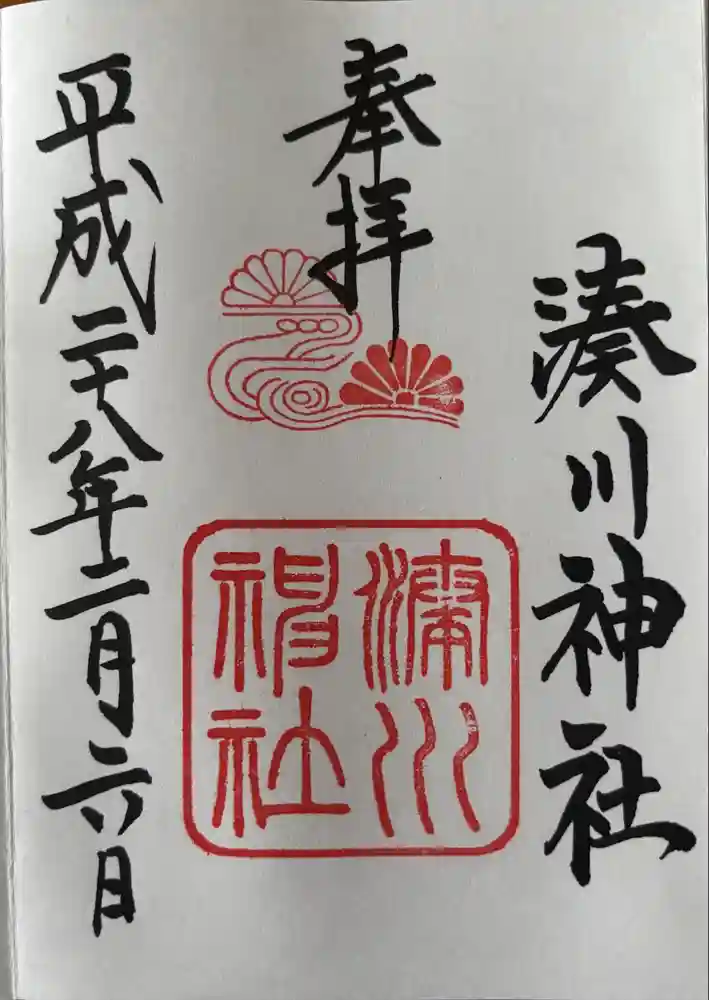 湊川神社
奉拝
湊川
神社
平成二十八年二月六日